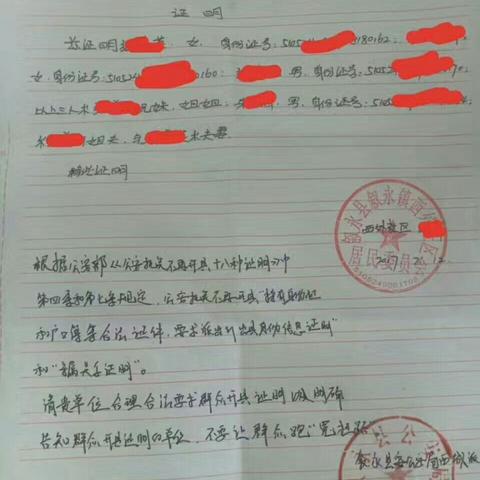 证明
兹证明 女，身份证号：5105 180162；
女，身份证号：510524 0160； 男，身份证号：51052 70，
以上三人系 兄妹、姐姐； 男，身份证号：5105
系 姐夫，与 系夫妻
特此证明
叙永县叙永镇西 区
居民委员会
西 社区
510524000170
根据公安部《公安机关不再开具十八种证明》中
第四条和第七条规定，公安机关不再开具"持有身份证
和户口簿等合法证件，要求派出所出具身份信息证明"
和"亲属关系证明"。
请贵单位合理合法要求群众开具证明，以及明确
告知群众开具证明的单位，不要让群众跑"冤枉路"
叙永县公安局西城派